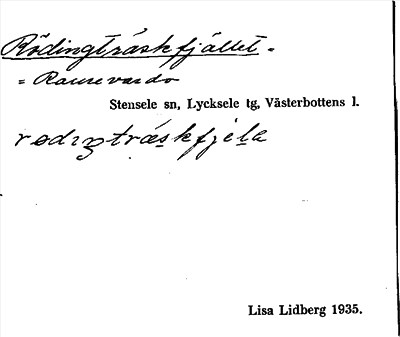 Rödingträskfjället.
= Raurevardo
Stensele sn, Lycksele tg, Västerbottens l.
rødıŋtræskfjela
Lisa Lidberg 1935.